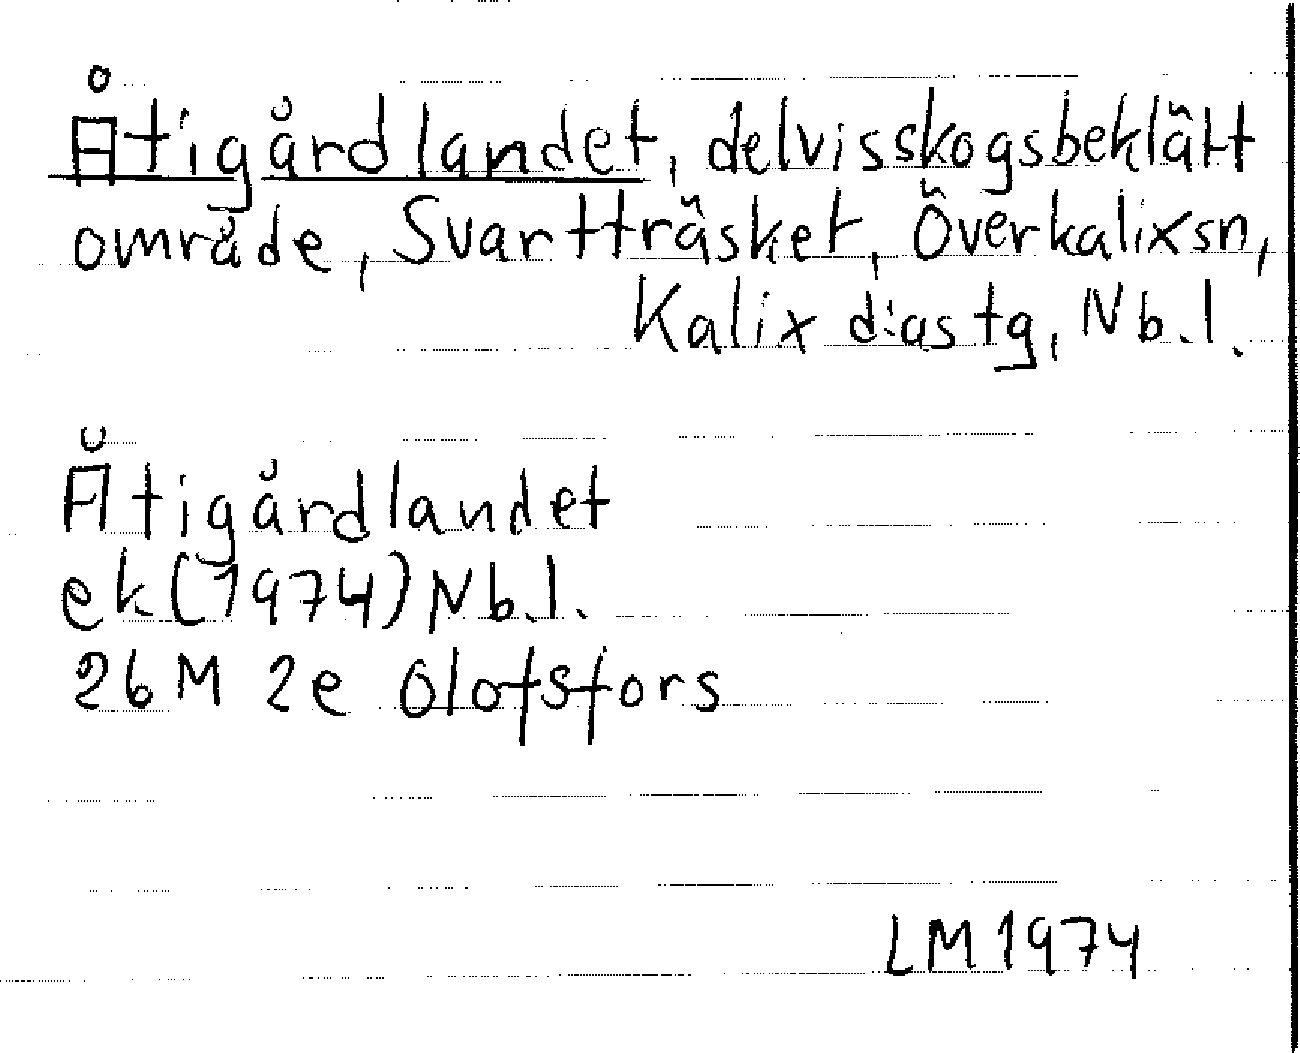 Åtigårdlandet, delvis skogsbeklätt
område, Svartträsket, Överkalix sn,
Kalix d:as tg, Nb.l.
Åtigårdlandet
ek (1974) Nb.l.
26M 2e Olofsfors
LM 1974